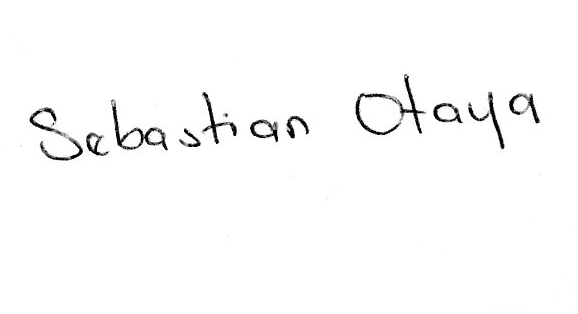 Sebastian Otaya